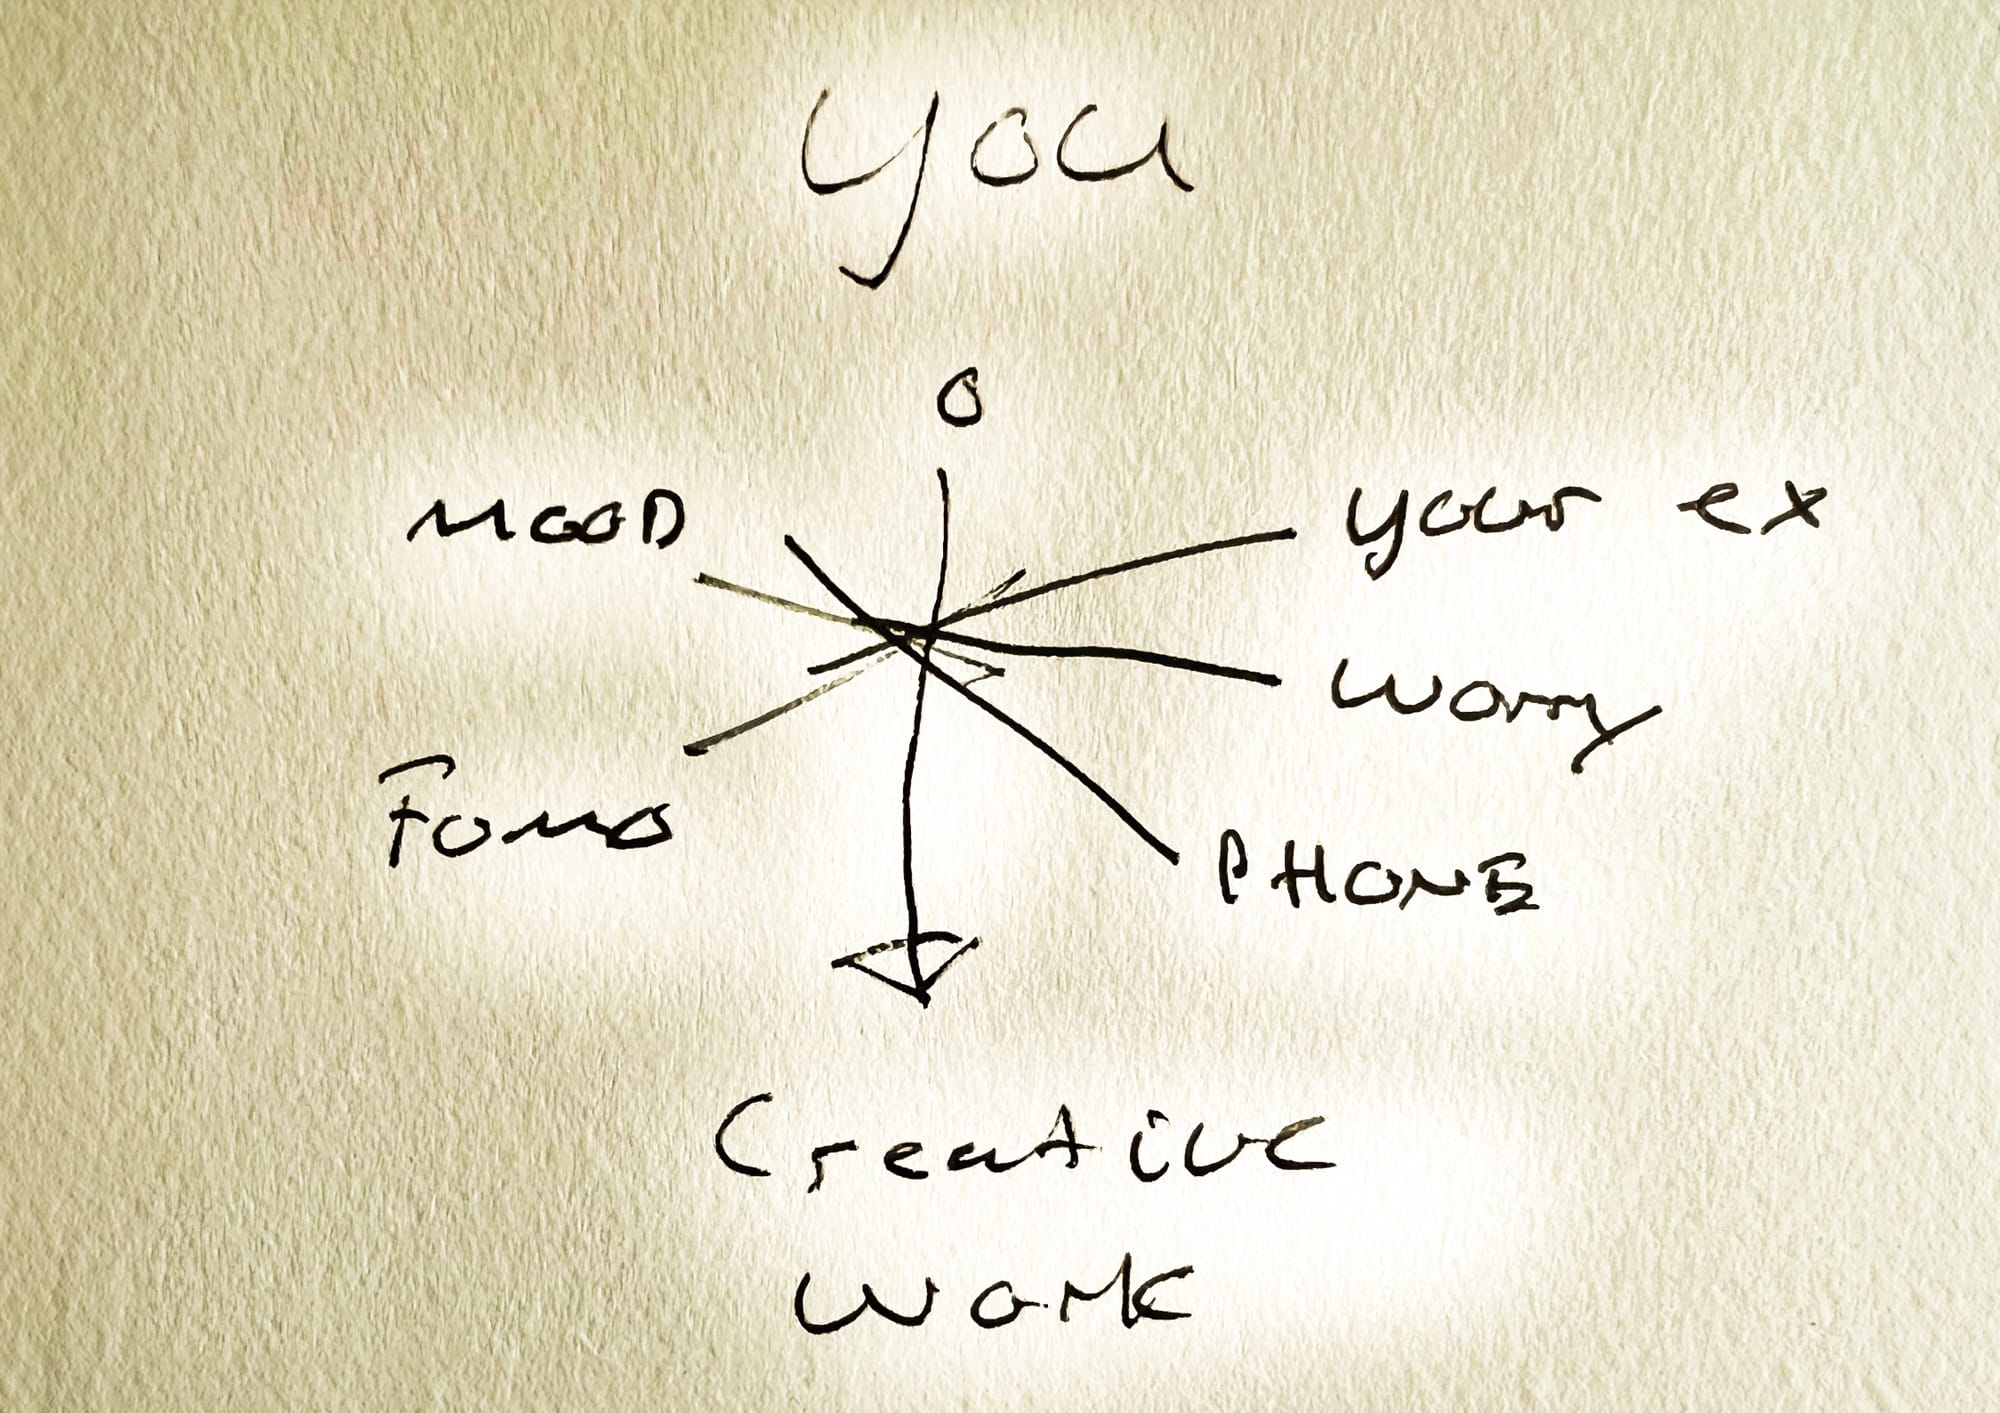 you
MOOD
your ex
worry
FOMO
PHONE
Creative
work